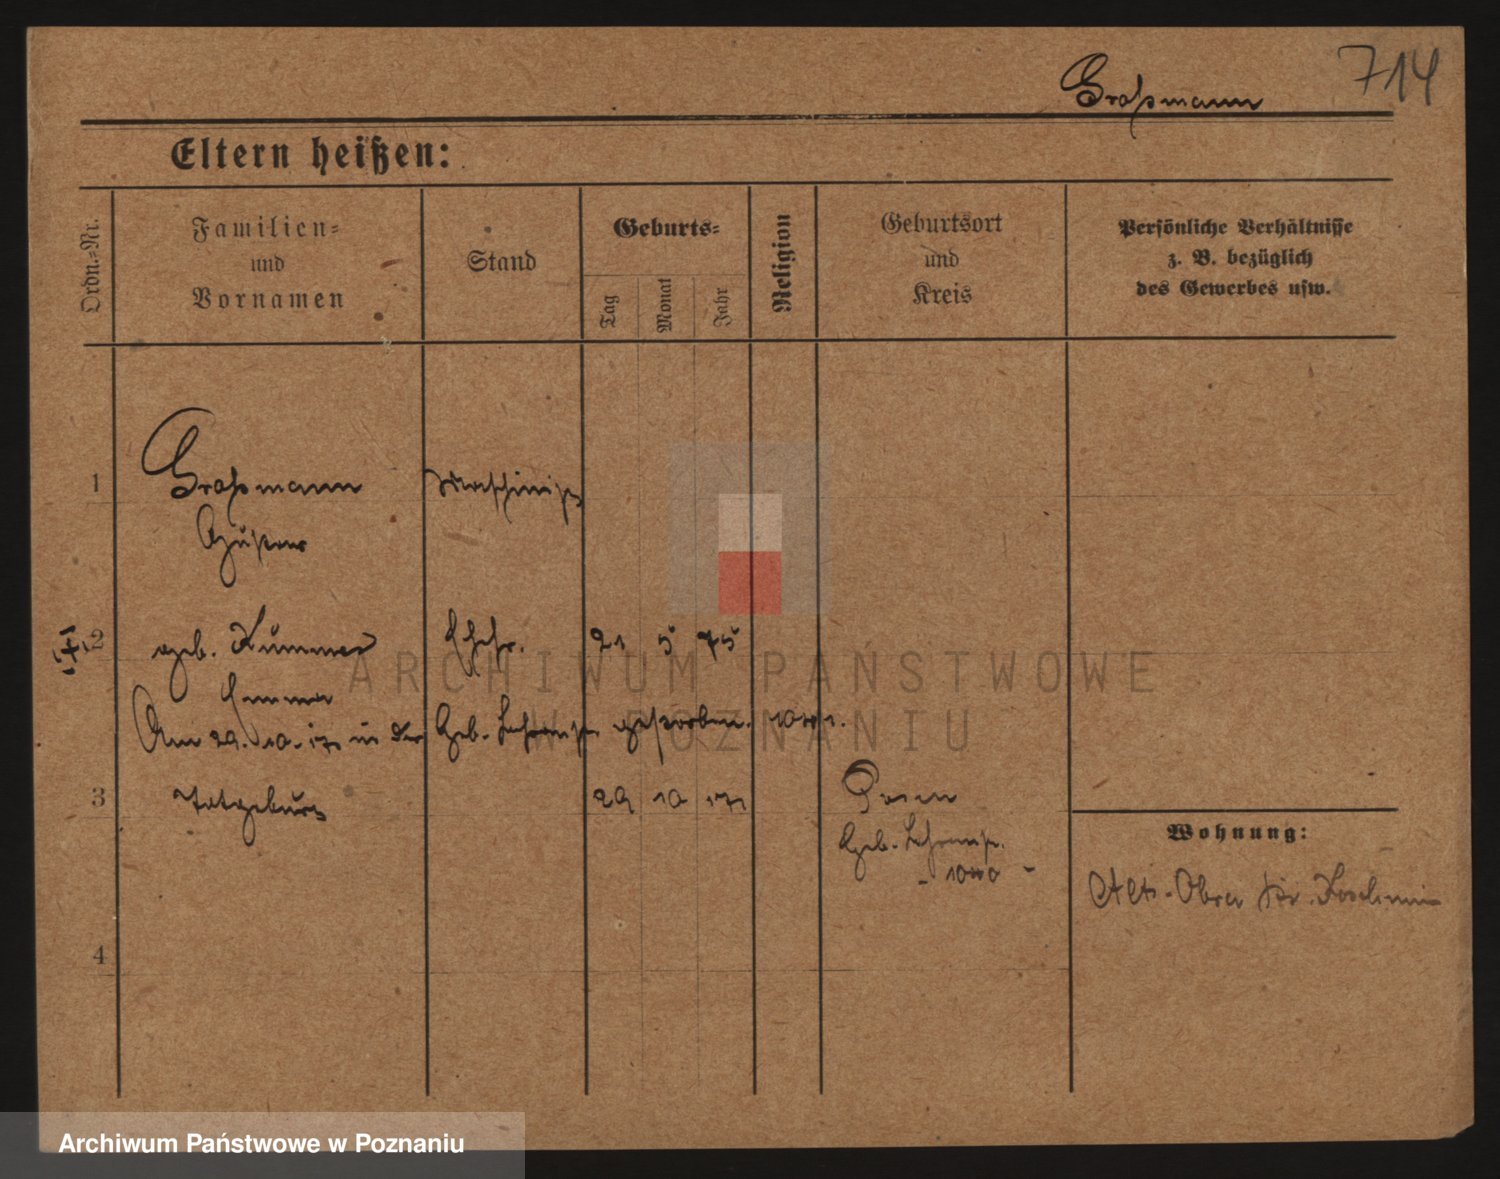 714
Großmann
Eltern heißen:
Ordn.-Nr.
Familien-
und
Vornamen
Stand
Geburts-
Tag
Monat
Jahr
Religion
Geburtsort
und
Kreis
Persönliche Verhältnisse
z. B. bezüglich
des Gewerbes usw.
1
Großmann
Maschinist
Gustav
2
geb. Kummer
Ehefr.
21
5
75
Emma
Am 29. 10. 17 in der Geb. gestorben.
3
Totgeburt
29
10
17
Posen
Geb.
Wohnung:
Alt-Obra Kr. Koschmin
4
ARCHIWUM PAŃSTWOWE
W POZNANIU
Archiwum Państwowe w Poznaniu